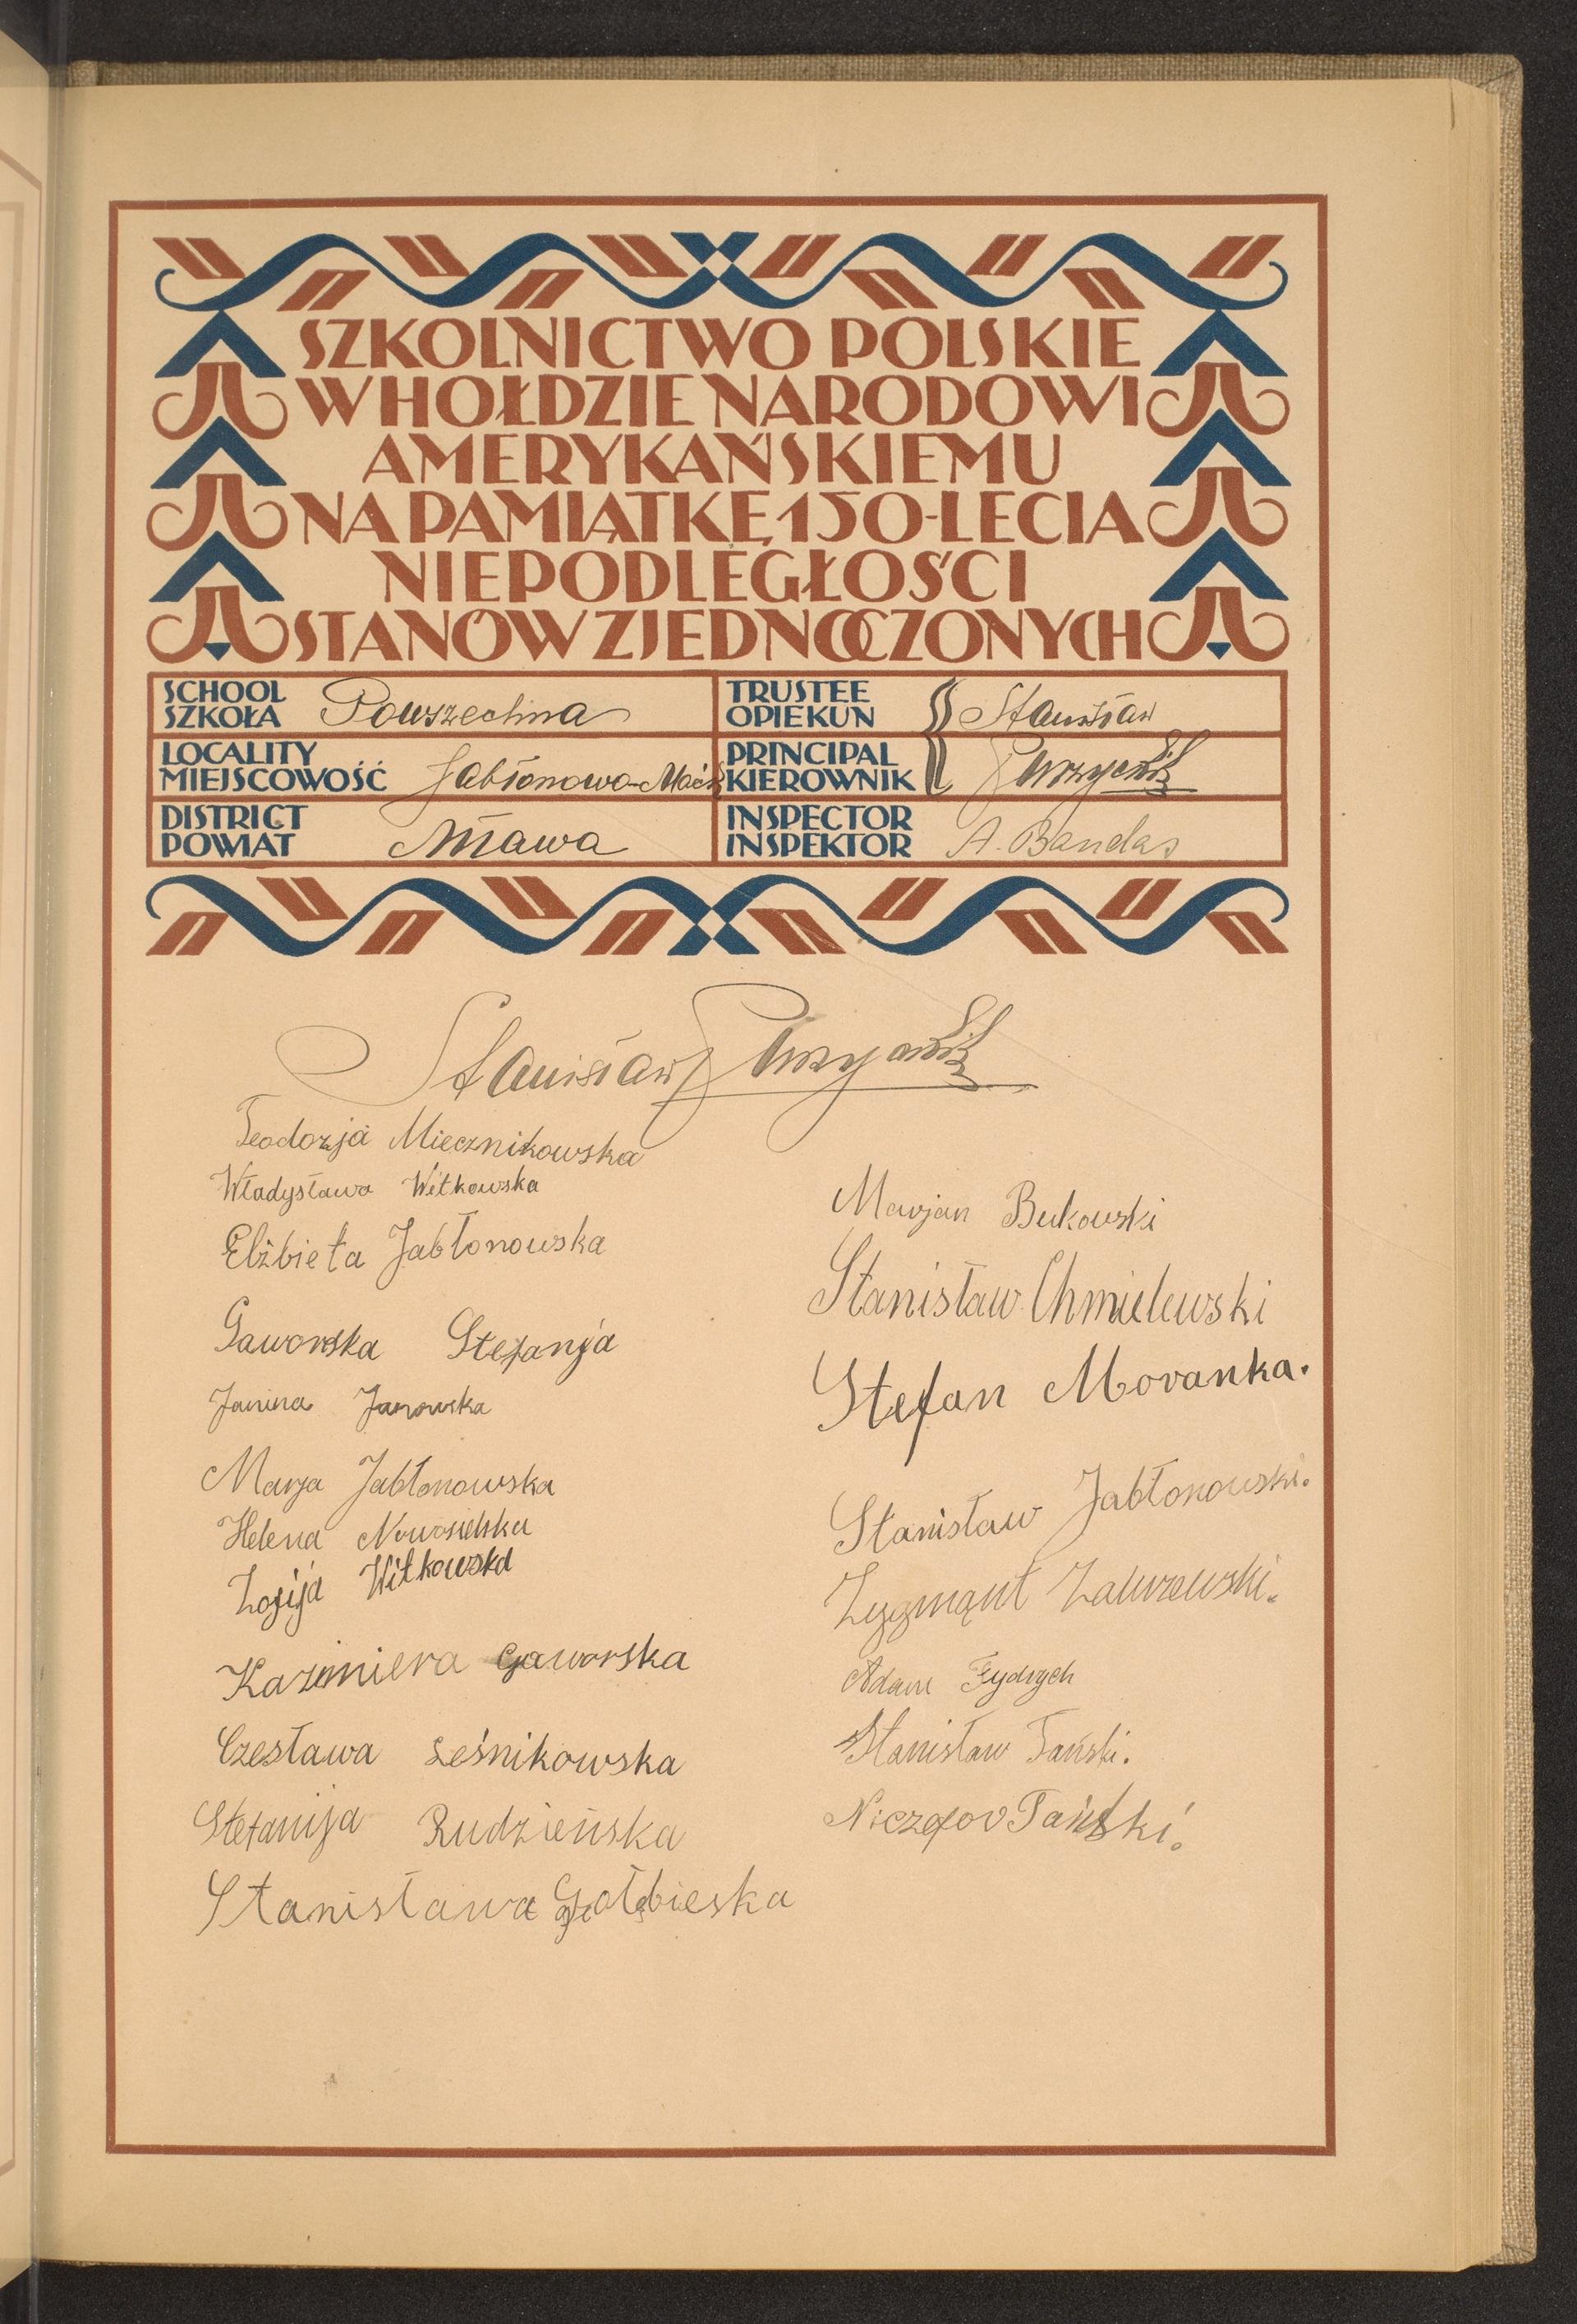 SZKOLNICTWO POLSKIE
W HOŁDZIE NARODOWI
AMERYKAŃSKIEMU
NA PAMIĄTKĘ 150-LECIA
NIEPODLEGŁOŚCI
STANÓW ZJEDNOCZONYCH
SCHOOL
SZKOŁA Powszechna
TRUSTEE
OPIEKUN Stanisław
LOCALITY
MIEJSCOWOŚĆ Jabłonowo-Maćk
PRINCIPAL
KIEROWNIK
DISTRICT
POWIAT Mława
INSPECTOR
INSPEKTOR A. Bandas
Stanisław
Teodozja Miecznikowska
Władysława Witkowska
Elżbieta Jabłonowska
Gaworska Stefanja
Janina Janowska
Marja Jabłonowska
Helena Nowosielska
Zofija Witkowska
Kazimiera Gaworska
Czesława Leśnikowska
Stefanija Rudzieńska
Stanisława Gołębieska
Marjan Bukowski
Stanisław Chmielewski
Stefan Moranka.
Stanisław Jabłonowski.
Zygmąnt Zakrzewski.
Adam Frydrych
Stanisław Tański.
Niczefor Tański.